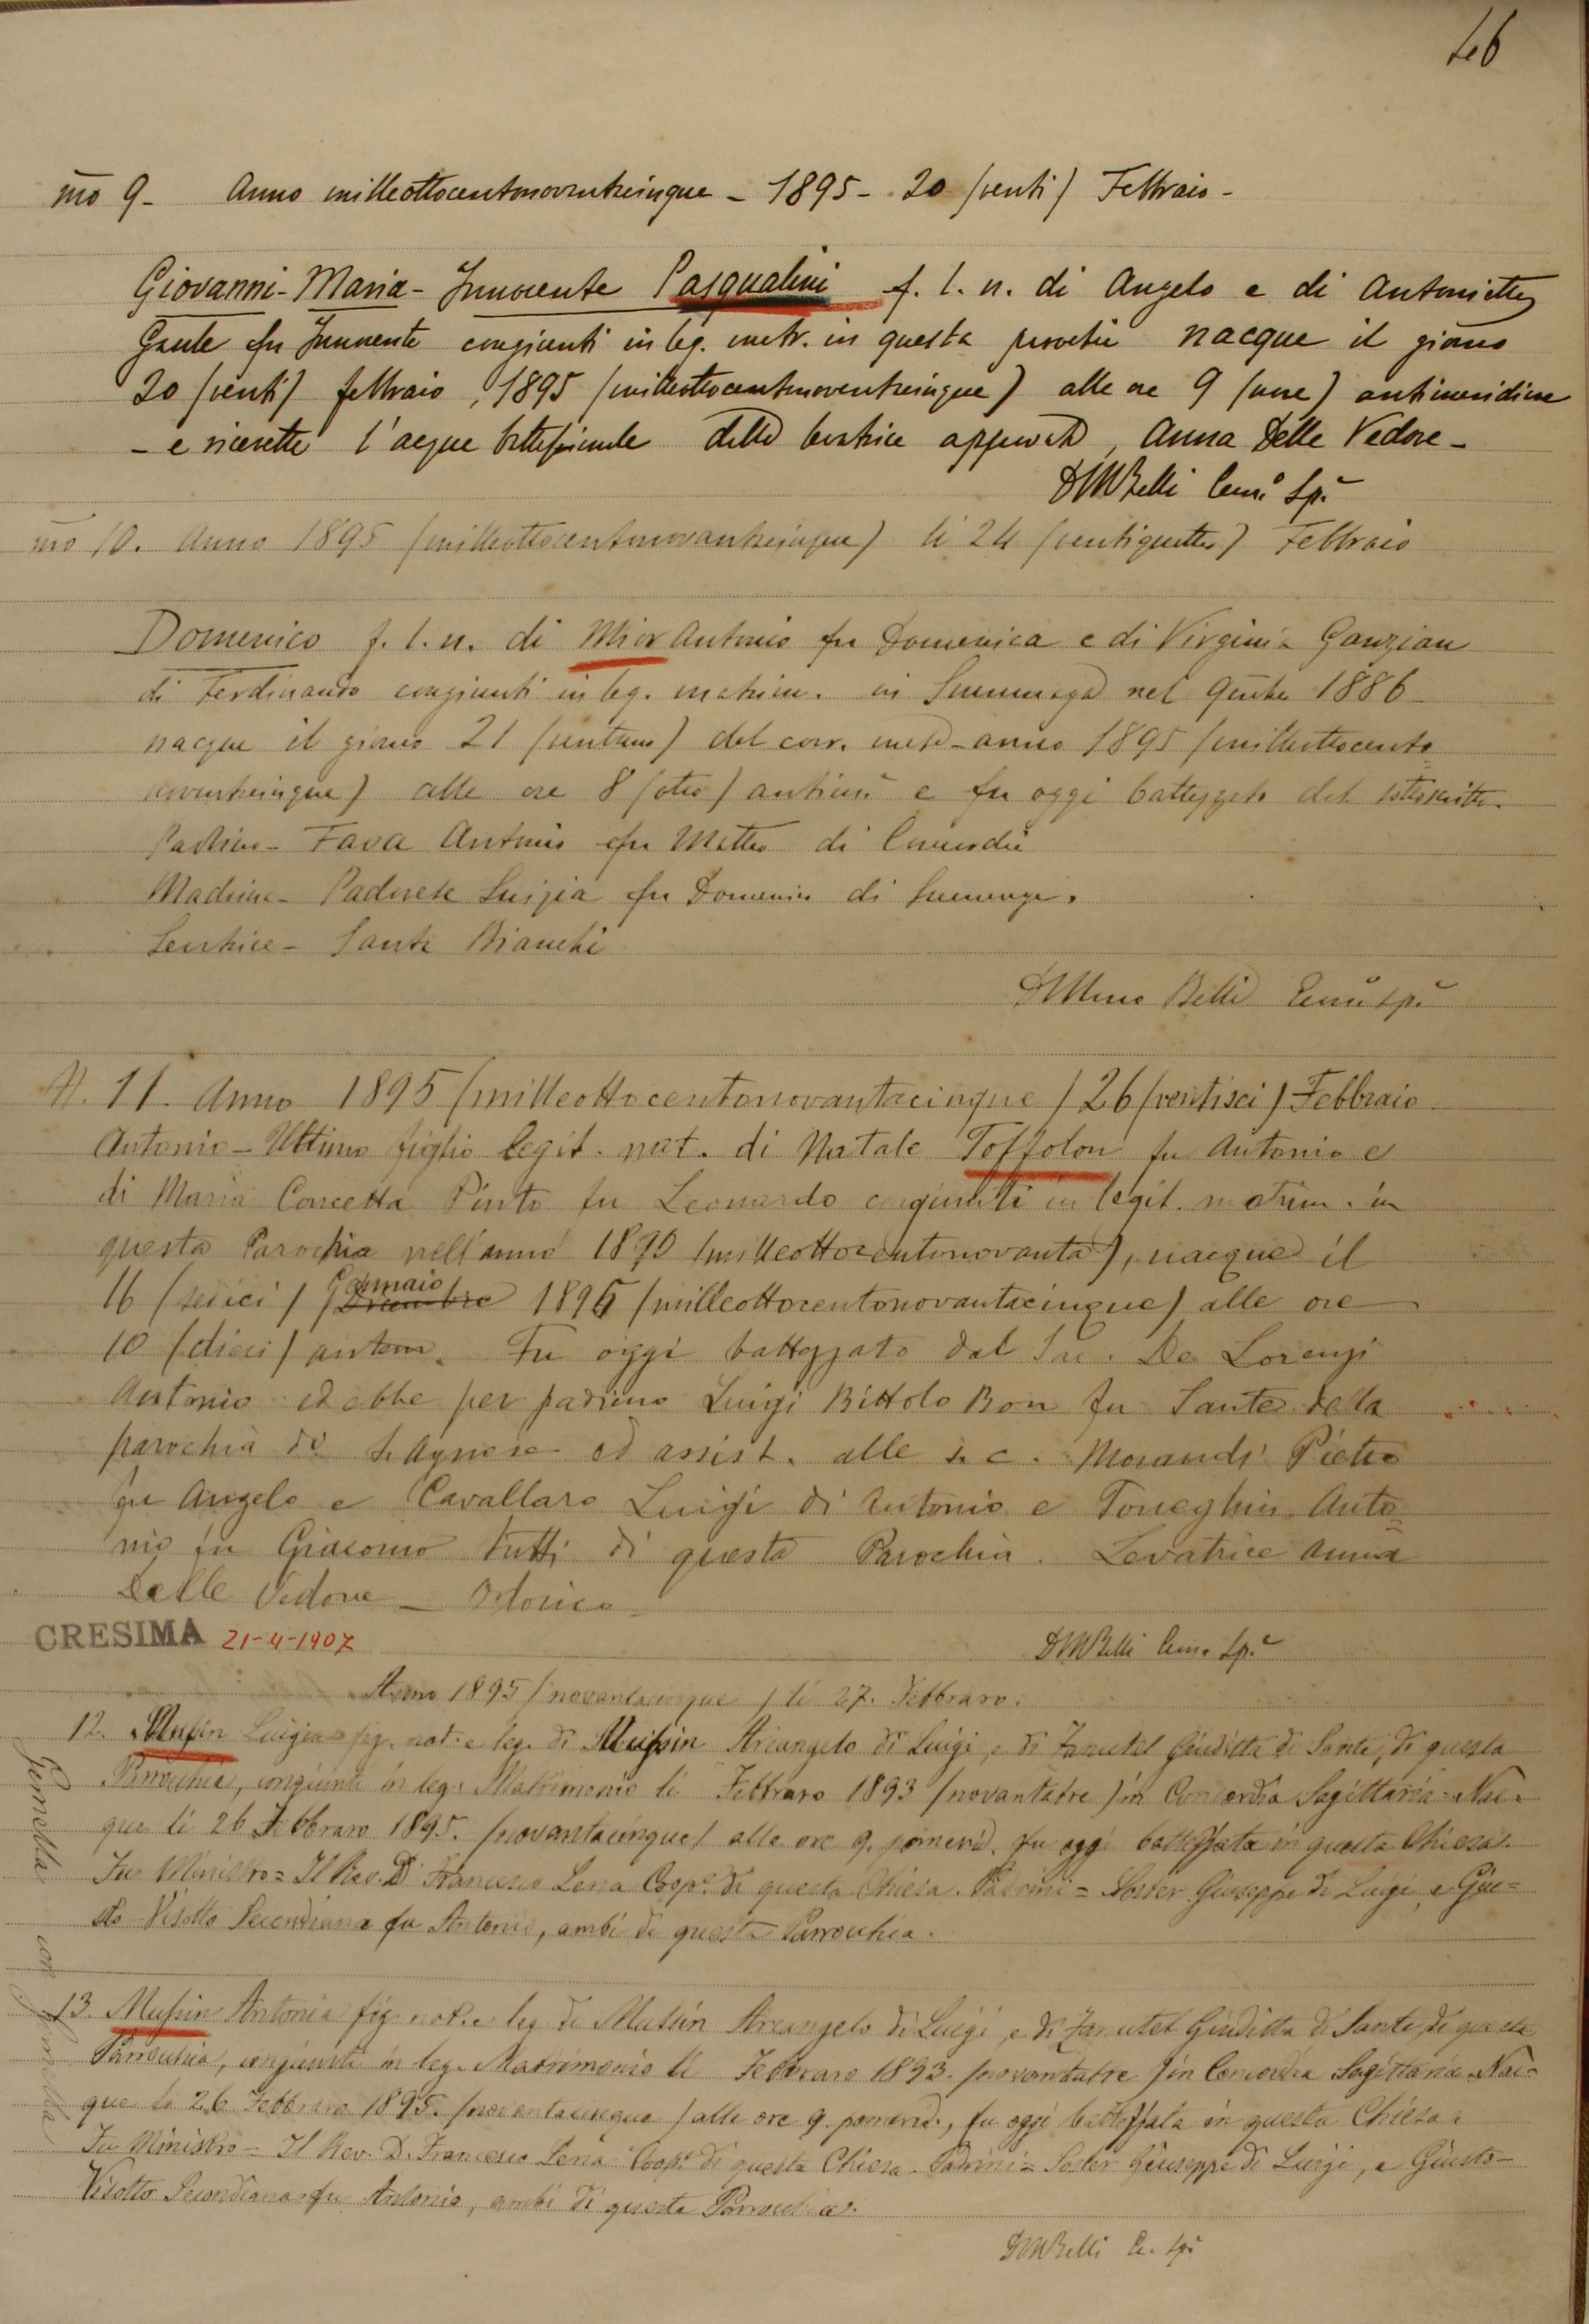 46
mo 9- Anno milleottocentonovantacinque - 1895 - 20 (venti) Febbraio -
Giovanni - Maria - Innocente Pasqualini f. l. n. di Angelo e di Antonietta
fu Innocente congiunti in leg. matr. in questa nacque il giorno
20 (venti) febbraio, 1895 (milleottocentonovantacinque) alle ore 9 (nove) antimeridiane
- e ricevette l'acqua battesimale dalla levatrice approvata, Anna Delle Vedove -
DMBelli
mo 10. Anno 1895 (milleottocentonovantacinque) li 24 (ventiquattro) Febbraio
Domenico f. l. n. di Mior Antonio fu Domenico e di Virginia Ganzian
di Ferdinando congiunti in leg. matrim. in Summaga nel 1886
nacque il giorno 21 (ventuno) del corr. mese - anno 1895 (milleottocento=
novantacinque) alle ore 8 (otto) antim. e fu oggi battezzato dal sottoscritto.
Padrino - Fava Antonio fu Matteo di Concordia
Madrina - Padovese Luigia fu Domenico di Summaga.
Levatrice - Santa Bianchi
Belli
N. 11. Anno 1895 (milleottocentonovantacinque) 26 (ventisei) Febbraio
Antonio - Ultimo figlio legit. nat. di Natale Toffolon fu Antonio e
di Maria Concetta Pinto fu Leonardo congiunti in legit. matrim. in
questa Parochia nell'anno 1890 (milleottocentonovanta), nacque il
16 (sedici) Gennaio 1895 (milleottocentonovantacinque) alle ore
10 (dieci) antem. Fu oggi battezzato dal Sac. De Lorenzi
Antonio ed ebbe per padrino Luigi Bittolo Bon fu Sante della
parochia di S. Agnese ed assist. alle s. c. Morandi Pietro
fu Angelo e Cavallaro Luigi di Antonio e Toneghin Anto=
nio fu Giacomo tutti di questa Parochia. Levatrice Anna
Delle Vedove -
CRESIMA 21-4-1907
DMBelli
Anno 1895 (novantacinque) li 27. Febbraro.
12. Mussin Luigia fig. nat. e leg. di Mussin Arcangelo di Luigi, e di Zanutel Giuditta di Sante, di questa
Parrocchia, congiunti in leg. Matrimonio li Febbraro 1893 (novantatre) in Concordia Sagittaria. Nac=
que li 26 Febbraro 1895. (novantacinque) alle ore 9. pomerid. fu oggi battezzata in questa Chiesa.
Fu Ministro = Il Rev. D. Francesco Lena Coop.e di questa Chiesa. Padrini = Soster Giuseppe di Luigi, e Giu=
sto Visotto Secondiana fu Antonio, ambi di questa Parrocchia.
Gemella con gemella
13. Mussin Antonia fig. nat. e leg. di Mussin Arcangelo di Luigi, e di Zanutel Giuditta di Sante, di questa
Parrocchia, congiunti in leg. Matrimonio li Febbraro 1893. (novantatre) in Concordia Sagittaria. Nac=
que li 26 Febbraro 1895. (novantacinque) alle ore 9. pomerid., fu oggi battezzata in questa Chiesa.
Fu Ministro = Il Rev. D. Francesco Lena Coop.e di questa Chiesa. Padrini = Soster Giuseppe di Luigi, e Giusto -
Visotto Secondiana fu Antonio, ambi di questa Parrocchia.
DMBelli